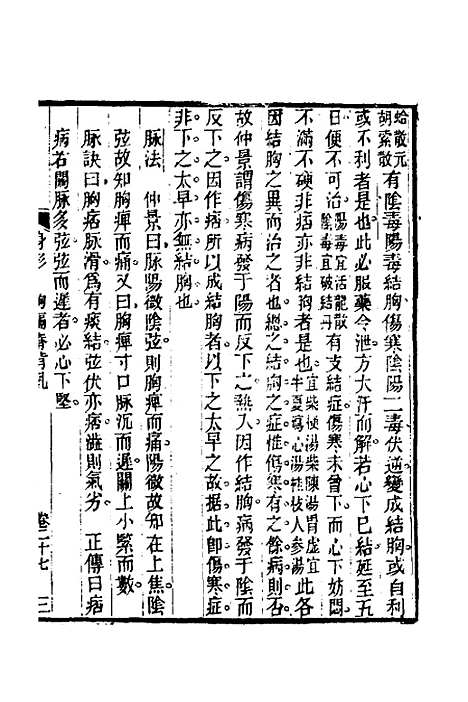 蛤散元胡索散有陰毒陽毒結胸傷寒陰陽二毒伏逆變成結胸或自利
或不利者是也此必服藥令泄方大汗而解若心下巳結延至五
日便不可治陽毒宜活龍散陰毒宜破結丹有支結症傷寒未曾下而心下妨悶
不滿不硬非痞亦非結胸者是也宜柴梗湯柴陳湯胃虛宜半夏瀉心湯桂枝人參湯此各
因結胸之異而治之者也總之結胸之症惟傷寒有之餘病則否
故仲景謂傷寒病發于陽而反下之熱入因作結胸病發于陰而
反下之因作痞所以成結胸者以下之太早之故據此卽傷寒症
非下之太早亦無結胸也
脉法 仲景曰脉陽微陰弦則胸痺而痛陽微故知在上焦陰
弦故知胸痺而痛又曰胸痺寸口脉沉而遲關上小緊而數
脉訣曰胸痞脉滑爲有痰結弦伏亦痞澁則氣劣 正傳曰痞
病右關脉多弦弦而遲者必心下堅
身形 胸膈脊背乳 卷二十七 三